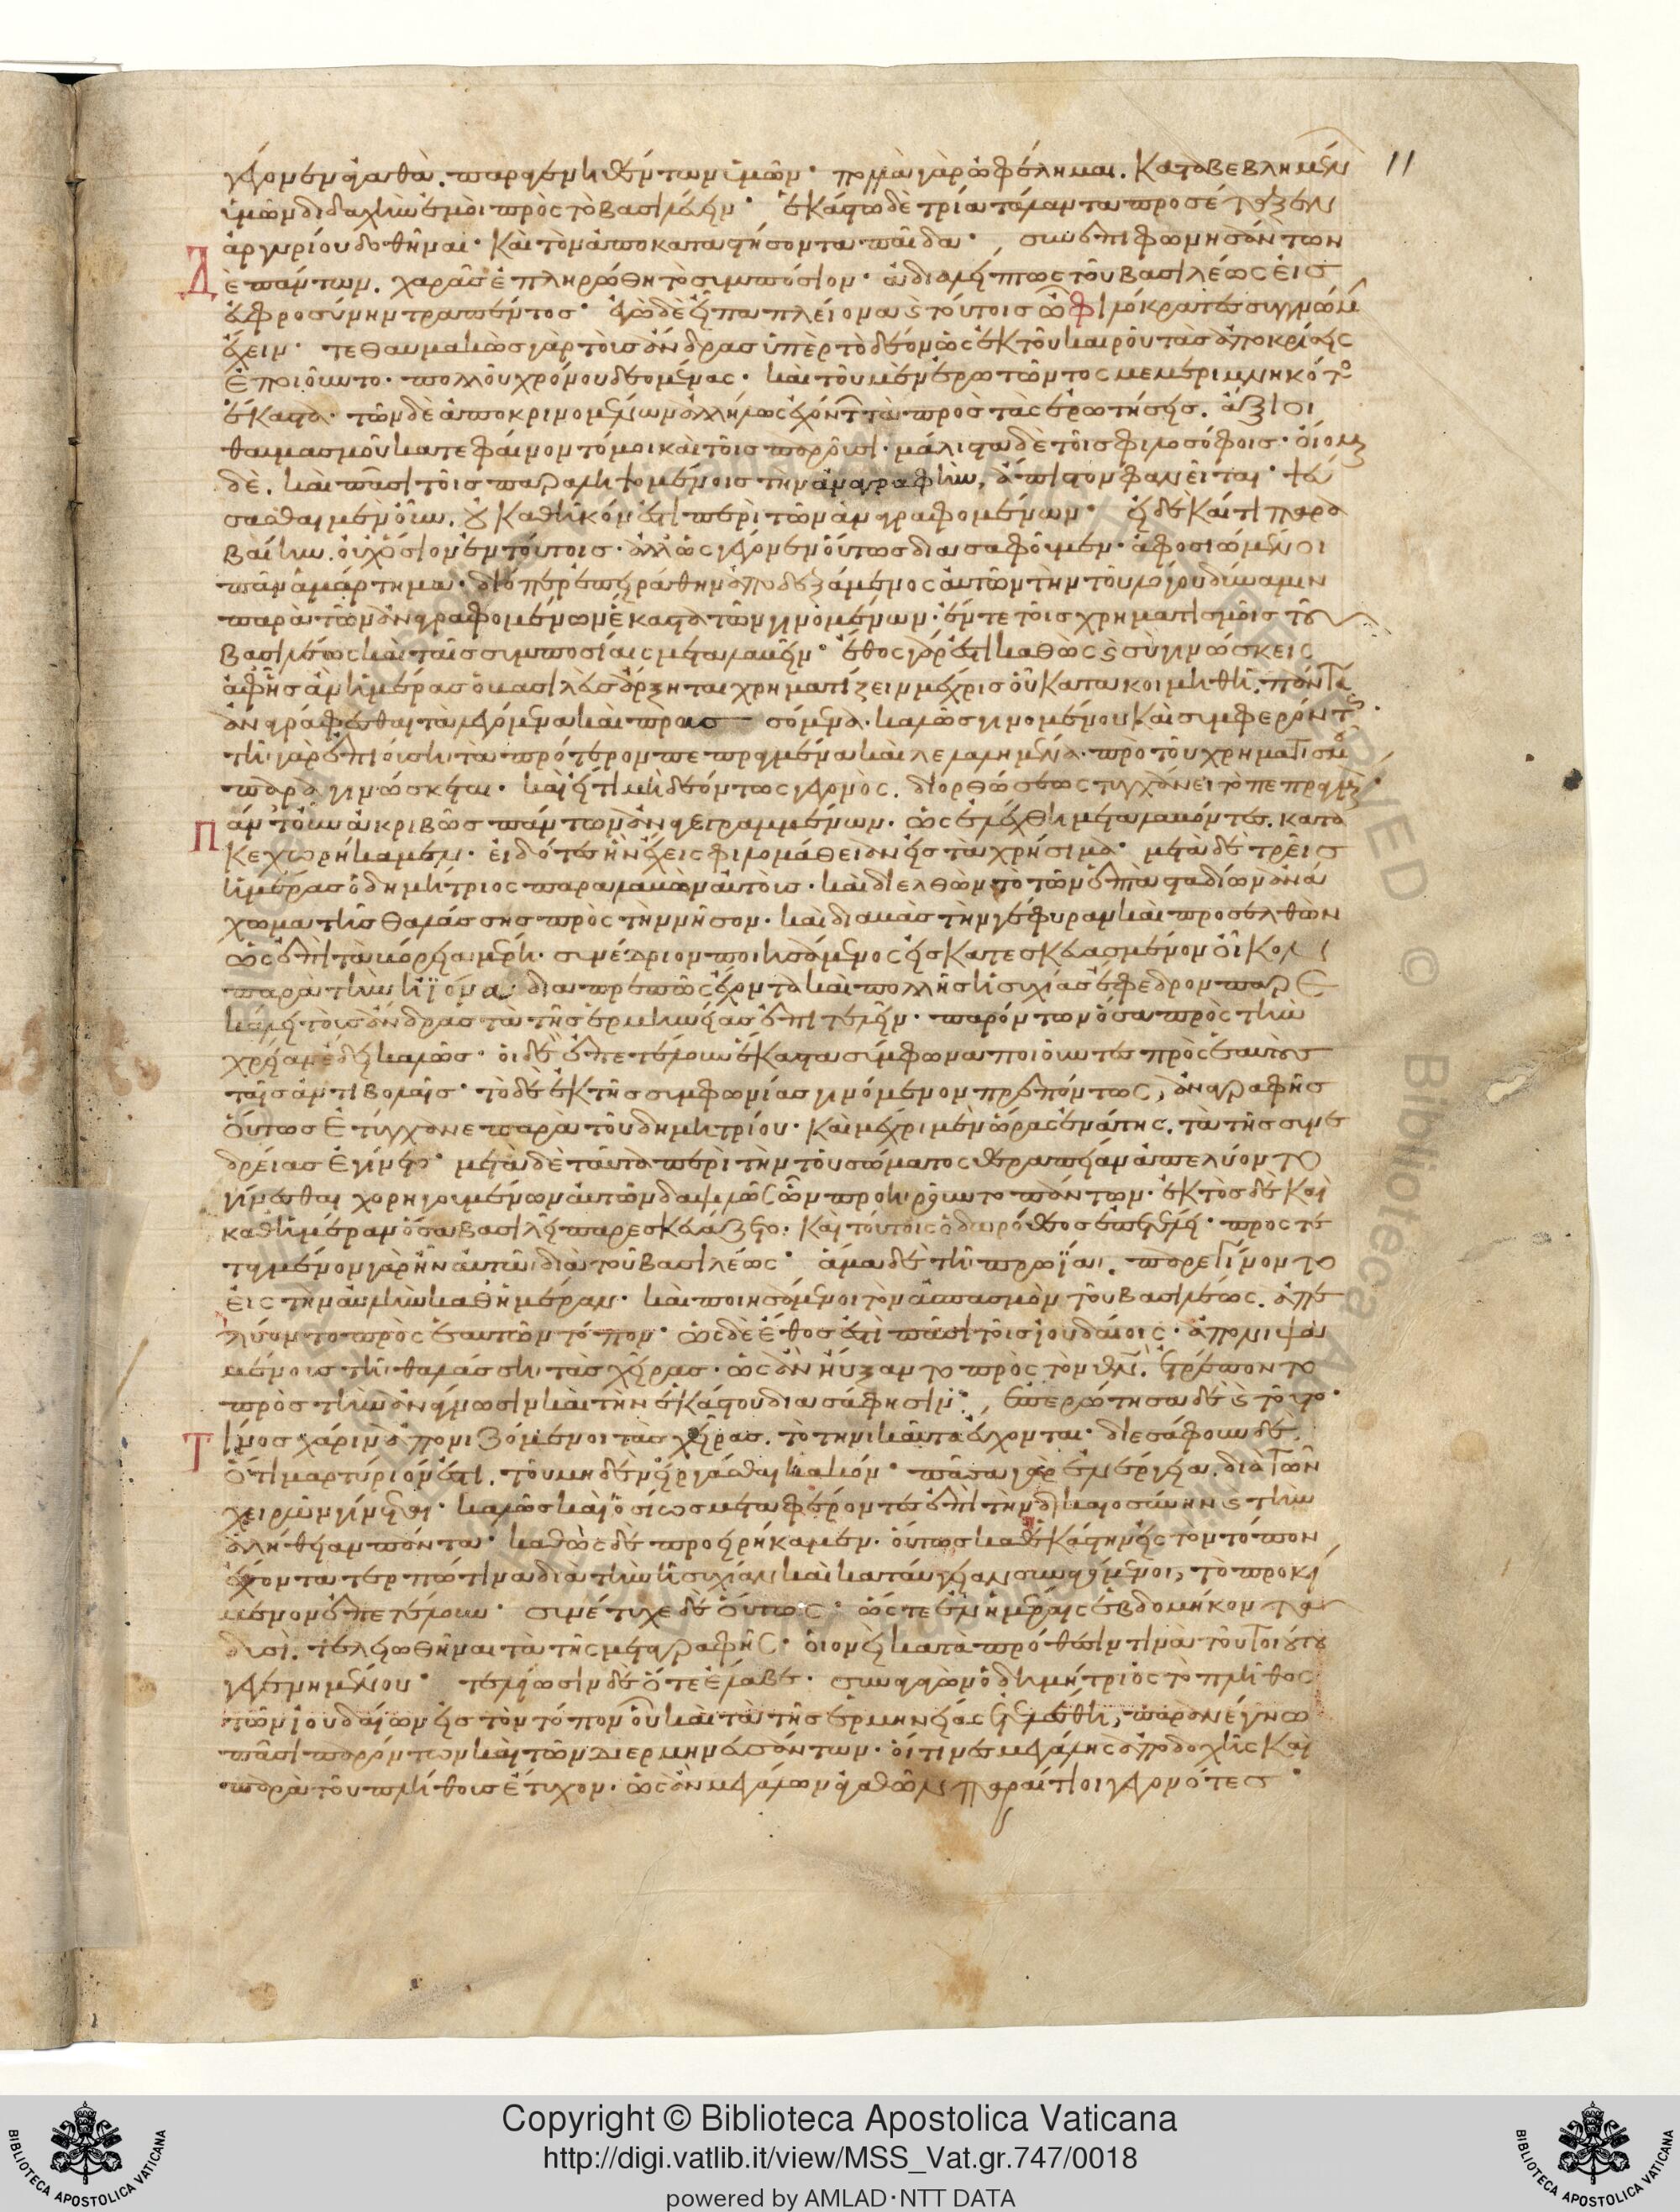 γέγονεν ἀγαθὰ. παραγενηθέντων ὑμῶν· πολλὰ γὰρ ὠφέλημαι. καταβεβλημέν
ὑμῶν διδαχὴν ἐμοὶ πρὸς τὸ βασιλεύειν· ἑκάστω δὲ τρία τάλαντα προσέταξεν
ἀργυρίου δοθῆναι· καὶ τὸν ἀποκαταστήσοντα παῖδα· συνεπιφωνησάντων
Δὲ πάντων. χαρᾶς ἐπληρώθη τὸ συμπόσιον· ἀδιαλείπτως τοῦ βασιλέως εἰς
εὐφροσύνην τραπέντος· ἐγὼ δὲ εἰ πεπλείονα ϛ τούτοις ὦ φιλόκρατες συγγνώμ
ἔχειν· τεθαυμακὼς γὰρ τοὺς ἄνδρας ὑπὲρ τὸ δέον ὡς ἐκ τοῦ καιροῦ τὰς ἀποκρίσεις
ἐποιοῦντο· πολλοῦ χρόνου δεομένας· καὶ τοῦ μὲν ἐρωτῶντος μεμεριμνηκότο
ἕκαστα· τῶν δὲ ἀποκρινομένων ἀλλήλως ἐχόντ τὰ πρὸς τὰς ἐρωτήσεις. ἄξιοι
θαυμασμοῦ κατεφαίνοντό μοι καὶ τοῖς παροῦσι· μάλιστα δὲ τοῖς φιλοσόφοις· οἴομαι
δὲ. καὶ πᾶσι τοῖς παραληψομένοις τὴν ἀναγραφὴν, ἄπιστον φανεῖται· ψεύ
σασθαι μὲν οὖν. οὐ καθῆκόν ἐστι περὶ τῶν ἀναγραφομένων· εἰ δὲ καί τι παρα
βαίην. οὐχ ὅσιον ἐν τούτοις· ἀλλ ὡς γέγονεν οὕτως διασαφοῦμεν· ἀφοσιώμενοι
πᾶν ἁμάρτημα· διόπερ ἐπειράθην ἀποδεξάμενος αὐτῶν τὴν τοῦ λόγου δύναμιν
παρὰ τῶν ἀναγραφομένων ἕκαστα τῶν γινομένων· ἔν τε τοῖς χρηματισμοῖς τοῦ
βασιλέως καὶ ταῖς συμποσίαις μεταλαβεῖν· ἔθος γάρ ἐστι καθὼς ϛ σὺ γινώσκεις
ἀφ ἧς ἂν ἡμέρας ὁ βασιλεὺς ἄρξηται χρηματίζειν μέχρις οὗ κατακοιμηθῆ. πάντα
ἀναγράφεσθαι τὰ λεγόμενα καὶ πρασσόμενα· καλῶς γινομένου καὶ συμφερόντ
τῆ γὰρ ἐπιούση τὰ πρότερον πεπραγμένα καὶ λελαλημένα· πρὸ τοῦ χρηματισμοῦ
παραγινώσκεται· καὶ εἴ τι μὴ δεόντως γέγονε. διορθώσεως τυγχάνει τὸ πεπραγμ
Πάντ οὖν ἀκριβῶς πάντων ἀναγεγραμμένων. ὡς ἐλέχθη μεταλαβόντες. κατα
κεχωρήκαμεν. εἰδότες ἣν ἔχεις φιλομάθειαν εἰς τὰ χρήσιμα· μετὰ δὲ τρεῖς
ἡμέρας ὁ δημήτριος παραλαβὼν αὐτοὺς· καὶ διελθὼν τὸ τῶν ἑπτα σταδίων ἀνά
χωμα τῆς θαλάσσης πρὸς τὴν νῆσον· καὶ διαβὰς τὴν γέφυραν καὶ προσελθὼν
ὡς ἐπὶ τὰ βόρεια μέρη· συνέδριον ποιησάμενος εἰς κατεσκευασμένον οἶκον
παρὰ τὴν ἠϊόνα· διαπρεπῶς ἔχοντα καὶ πολλῆς ἡσυχίας ἔφεδρον παρε
κάλει τοὺς ἄνδρας τὰ τῆς ἑρμηνείας ἐπιτελεῖν· παρόντων ὅσα πρὸς τὴν
χρείαν ἔδει καλῶς· οἱ δὲ ἐπετέλουν ἕκαστα σύμφωνα ποιοῦντες πρὸς ἑαυτοὺς
ταῖς ἀντιβολαῖς· τὸ δὲ ἐκ τῆς συμφωνίας γινόμενον πρεπόντως, ἀναγραφῆς
οὕτως ἐτύγχανε παρὰ τοῦ δημητρίου· καὶ μέχρι μὲν ὥρας ἐνάτης. τὰ τῆς συνε
δρείας ἐγίνετο· μετὰ δὲ ταῦτα περὶ τὴν τοῦ σώματος θεραπείαν ἀπελύοντο
γίνεσθαι χορηγουμένων αὐτῶν δαψιλῶς ὧν προηροῦντο πάντων· ἐκτὸς δὲ καὶ
καθ ἡμέραν ὅσα βασιλεῖ παρεσκευάζετο· καὶ τούτοις ὁ δωρόθεος ἐπετέλει· προστε
ταγμένον γὰρ ἦν αὐτῶ διὰ τοῦ βασιλέως· ἅμα δὲ τῆ πρωΐα. παρεγίνοντο
εἰς τὴν αὐλὴν καθ ἡμέραν· καὶ ποιησάμενοι τὸν ἀσπασμὸν τοῦ βασιλέως. ἀπε
λύοντο πρὸς ἑαυτῶν τόπον· ὡς δὲ ἔθος ἐστὶ πᾶσι τοῖς ἰουδαίοις· ἀπονιψά
μενοι τῆ θαλάσση τὰς χεῖρας· ὡς ἂν ηὔξαντο πρὸς τὸν θν. ἐτρέποντο
πρὸς τὴν ἀνάγνωσιν καὶ τὴν ἑκάστου διασάφησιν· ἐπερώτησα δὲ ϛ τοῦτο·
Τίνος χάριν ἀπονιζόμενοι τὰς χεῖρας. τὸ τηνικαῦτα εὔχονται· διεσάφουν δὲ
ὅτι μαρτύριόν ἐστι. τοῦ μηδὲν εἰργάσθαι κακόν· πᾶσα γὰρ ἐνέργεια. διὰ τῶν
χειρῶν γίνεται· καλῶς καὶ ὁσίως μεταφέροντες ἐπὶ τὴν δικαιοσύνην ϛ τὴν
ἀλήθειαν πάντα· καθὼς δὲ προειρήκαμεν· οὕτως καθ ἑκάστην εἰς τὸν τόπον
ἔχοντα τερπνότητα διὰ τὴν ἡσυχίαν καὶ καταύγειαν συναγόμενοι, τὸ προκεί
μενον ἐπετέλουν· συνέτυχε δὲ οὕτως· ὥστε ἐν ἡμέραις ἑβδομήκοντα
δυσὶ. τελειωθῆναι τὰ τῆς μεταγραφῆς· οἱονεὶ κατὰ πρόθεσίν τινα τοῦ τοιούτου
γεγενημένου· τελείωσιν δὲ ὅτε ἔλαβε· συναγαγὼν ὁ δημήτριος τὸ πλῆθος
τῶν ἰουδαίων εἰς τὸν τόπον οὗ καὶ τὰ τῆς ἑρμηνείας ἐτελέσθη, παρανέγνω
πᾶσι παρόντων καὶ τῶν διερμηνευσάντων· οἵτινες μεγάλης ἀποδοχῆς καὶ
παρὰ τοῦ πλήθους ἔτυχον· ὡς ἂν μεγάλων ἀγαθῶν παραίτιοι γεγονότες·
11
Copyright © Biblioteca Apostolica Vaticana
http://digi.vatlib.it/view/MSS_Vat.gr.747/0018
powered by AMLAD·NTT DATA
BIBLIOTECA APOSTOLICA VATICANA
BIBLIOTECA APOSTOLICA VATICANA